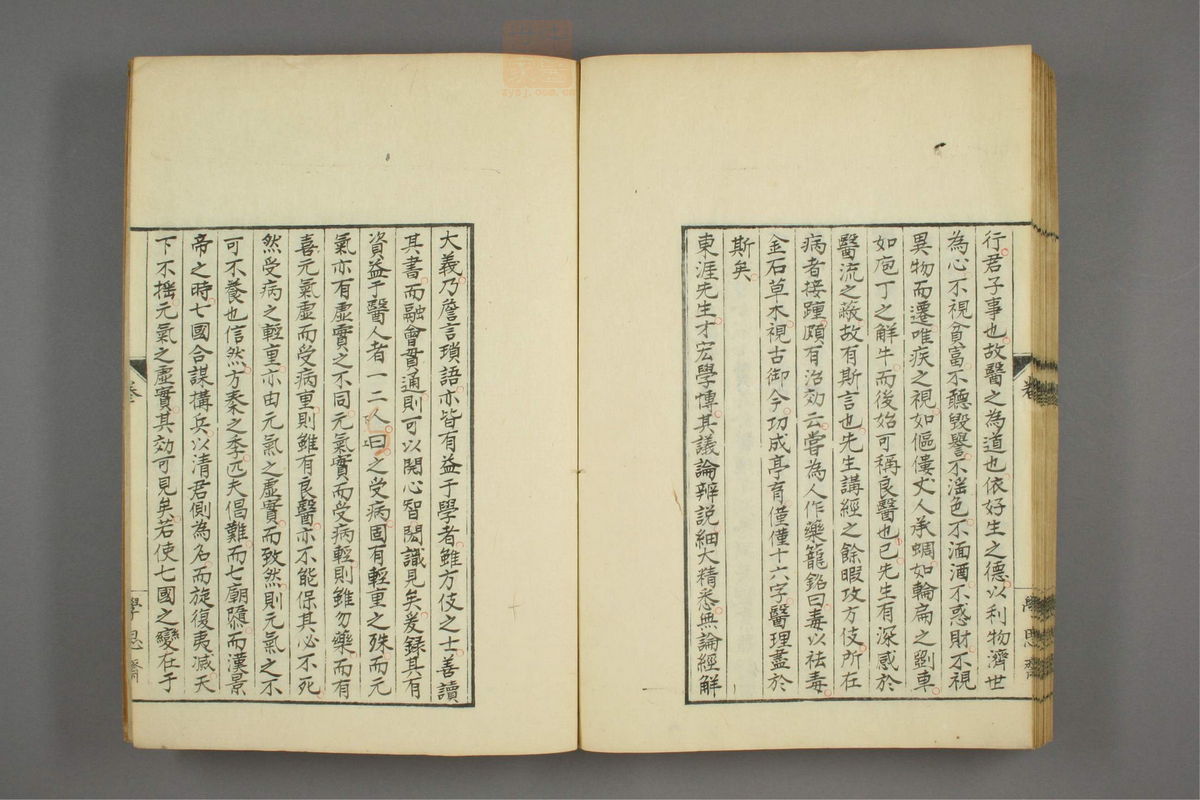 行君子事也故醫之為道也依好生之德以利物濟世
為心不視貧富不聽毀譽不滛色不湎酒不惑財不視
異物而遷唯疾之視如傴僂丈人承蜩如輪扁之斲車
如庖丁之解牛而後始可稱良醫也已先生有深感於
醫流之蔽故有斯言也先生講經之餘暇攻方伎所在
病者接踵頗有治効云嘗為人作藥籠銘曰毒以祛毒
金石草木視古御今功成亭育僅僅十六字醫理盡於
斯矣
東涯先生才宏學博其議論辨説細大精悉無論經解
大義乃詹言瑣語亦皆有益于學者雖方伎之士善讀
其書而融會貫通則可以開心智閎識見矣爰錄其有
資益于醫人者一二人曰之受病固有輕重之殊而元
氣亦有虛實之不同元氣實而受病輕則雖勿藥而有
喜元氣虛而受病重則雖有良醫亦不能保其必不死
然受病之輕重亦由元氣之虛實而致然則元氣之不
可不養也信然方秦之季匹夫倡難而七廟隳而漢景
帝之時七國合謀搆兵以清君側為名而旋復夷滅天
下不揺元氣之虛實其効可見矣若使七國之變在于
卷
學思齋